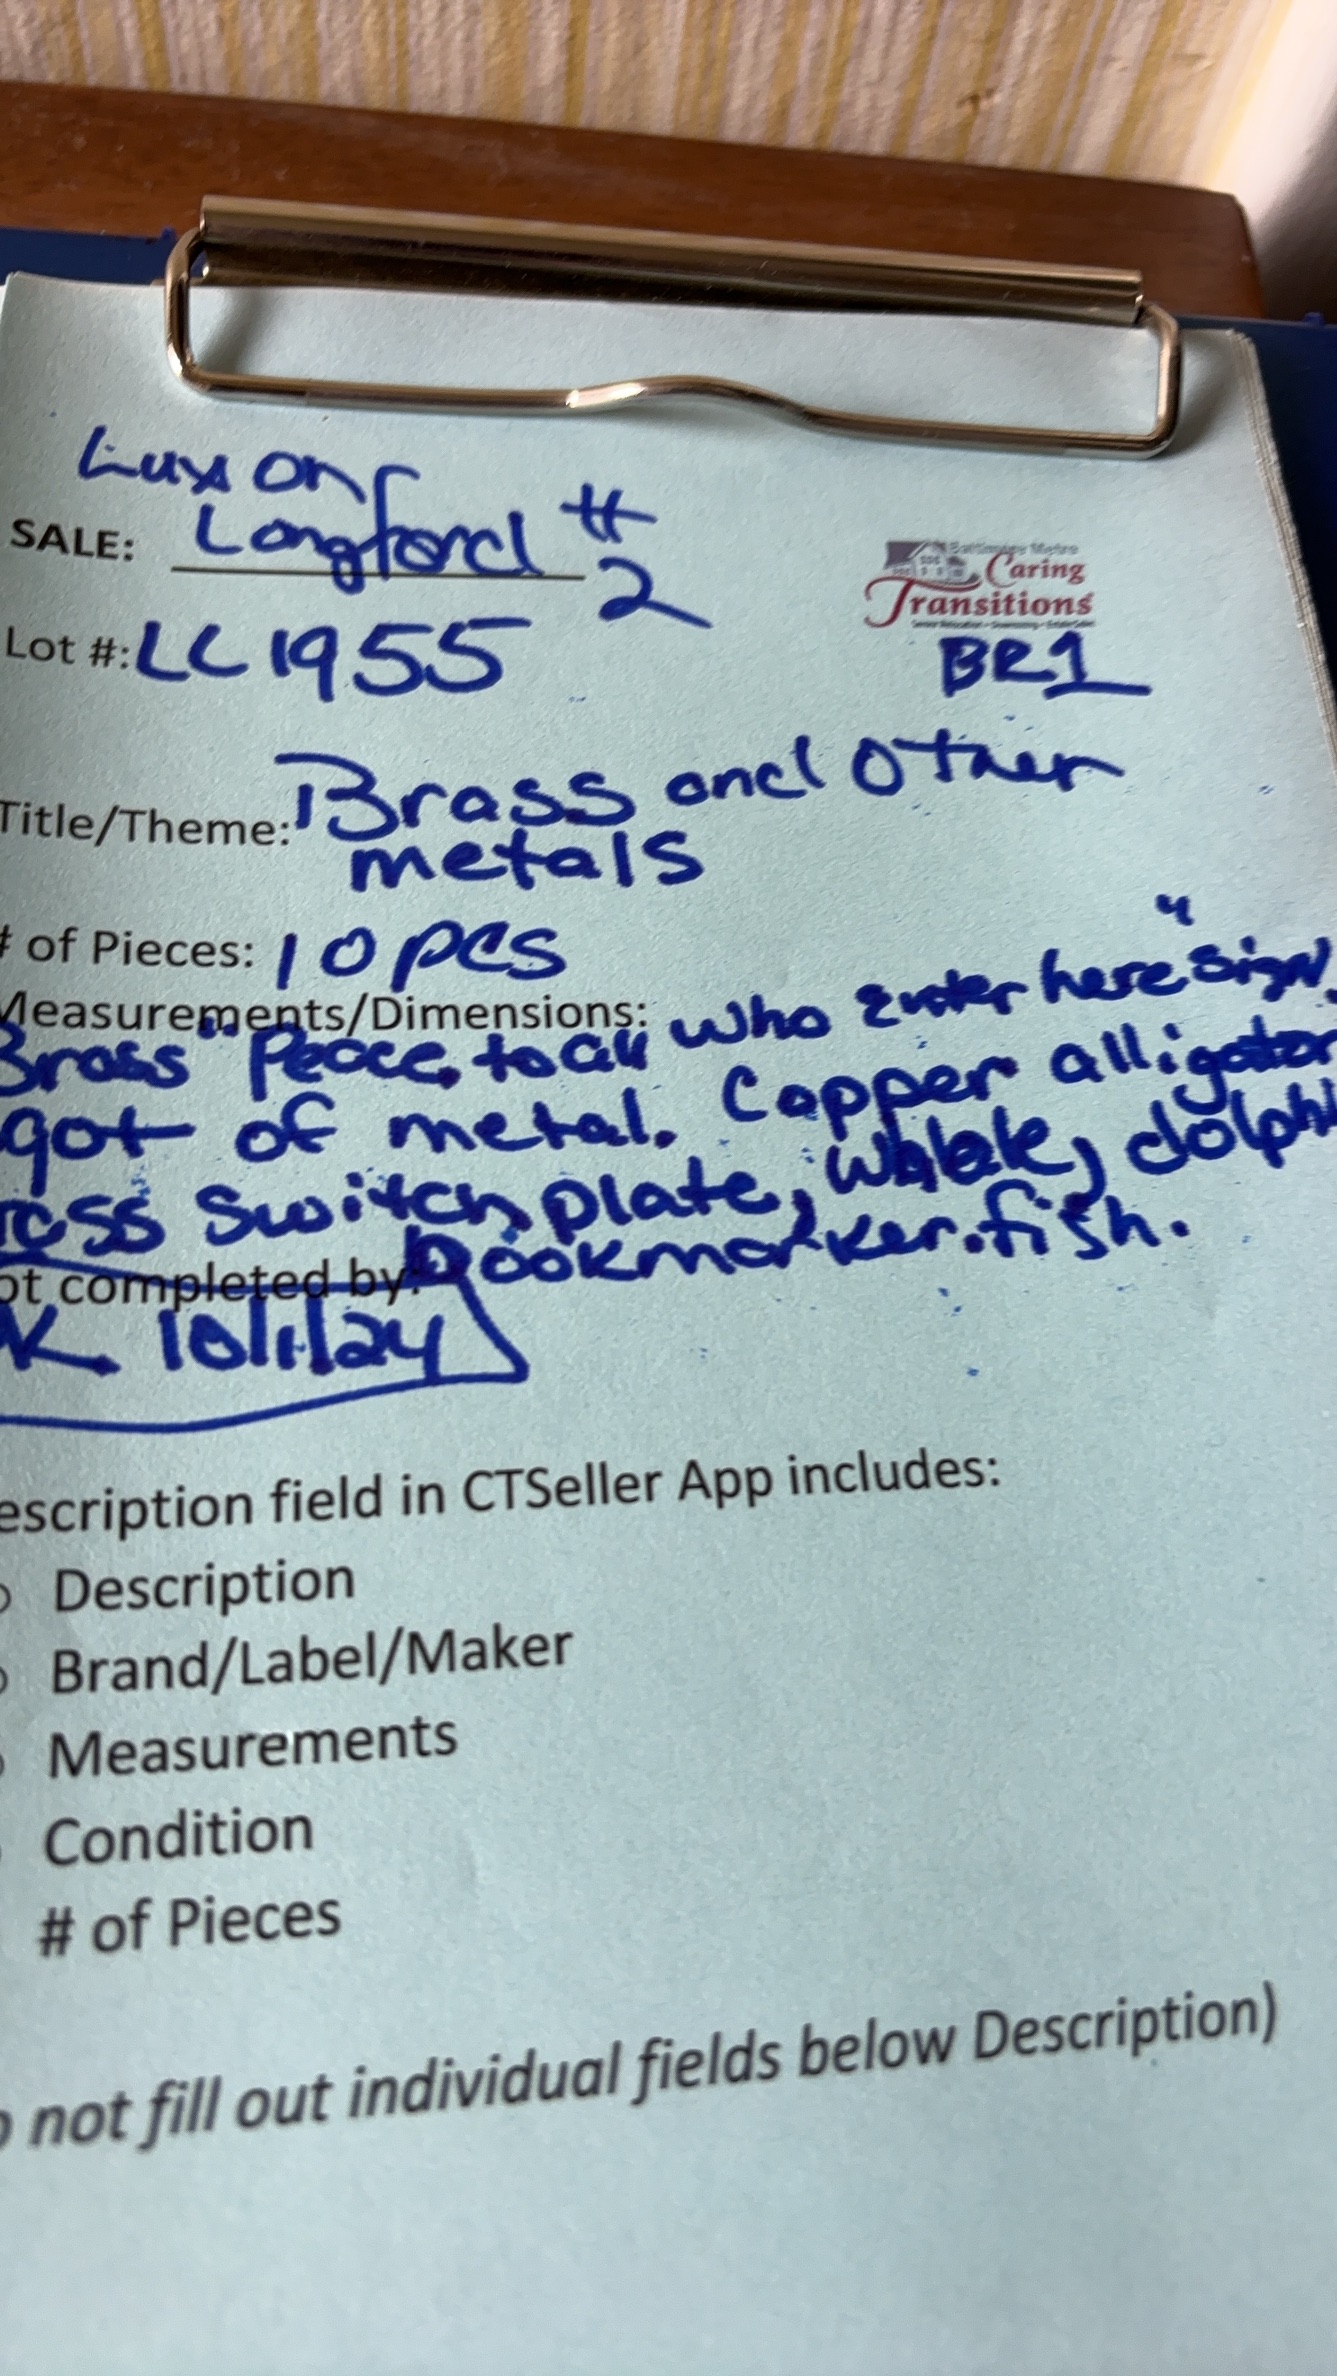 Lux on
SALE: Longford #2
Baltimore Metro
Caring
Transitions
Lot #: LC1955
BR1
Title/Theme: Brass and Other
metals
# of Pieces: 10 pcs
Measurements/Dimensions:
Brass "Peace to all who Enter here" sign.
got of metal. Copper alligator
rass switch plate, whale, dolphi
bookmarker. fish.
ot completed by:
K 10/1/24
escription field in CTSeller App includes:
Description
Brand/Label/Maker
Measurements
Condition
# of Pieces
o not fill out individual fields below Description)